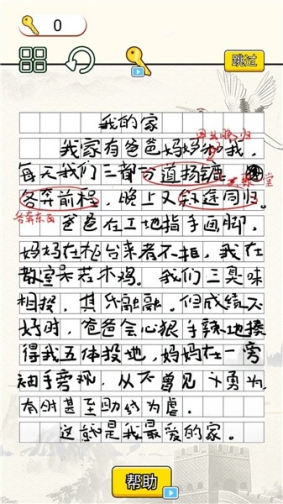 0
跳过
我的家
我家有爸爸妈妈和我，
每天我们三都分道扬镳
各奔前程，晚上又殊途同归。
各奔东西
爸爸在工地指手画脚，
妈妈在柜台来者不拒，我在
教室呆若木鸡。我们三臭味
相投，其乐融融。但成绩不
好时，爸爸会心狠手辣地揍
得我五体投地，妈妈在一旁
袖手旁观，从不曾见义勇为，
有时甚至助纣为虐。
这就是我最爱的家。
帮助